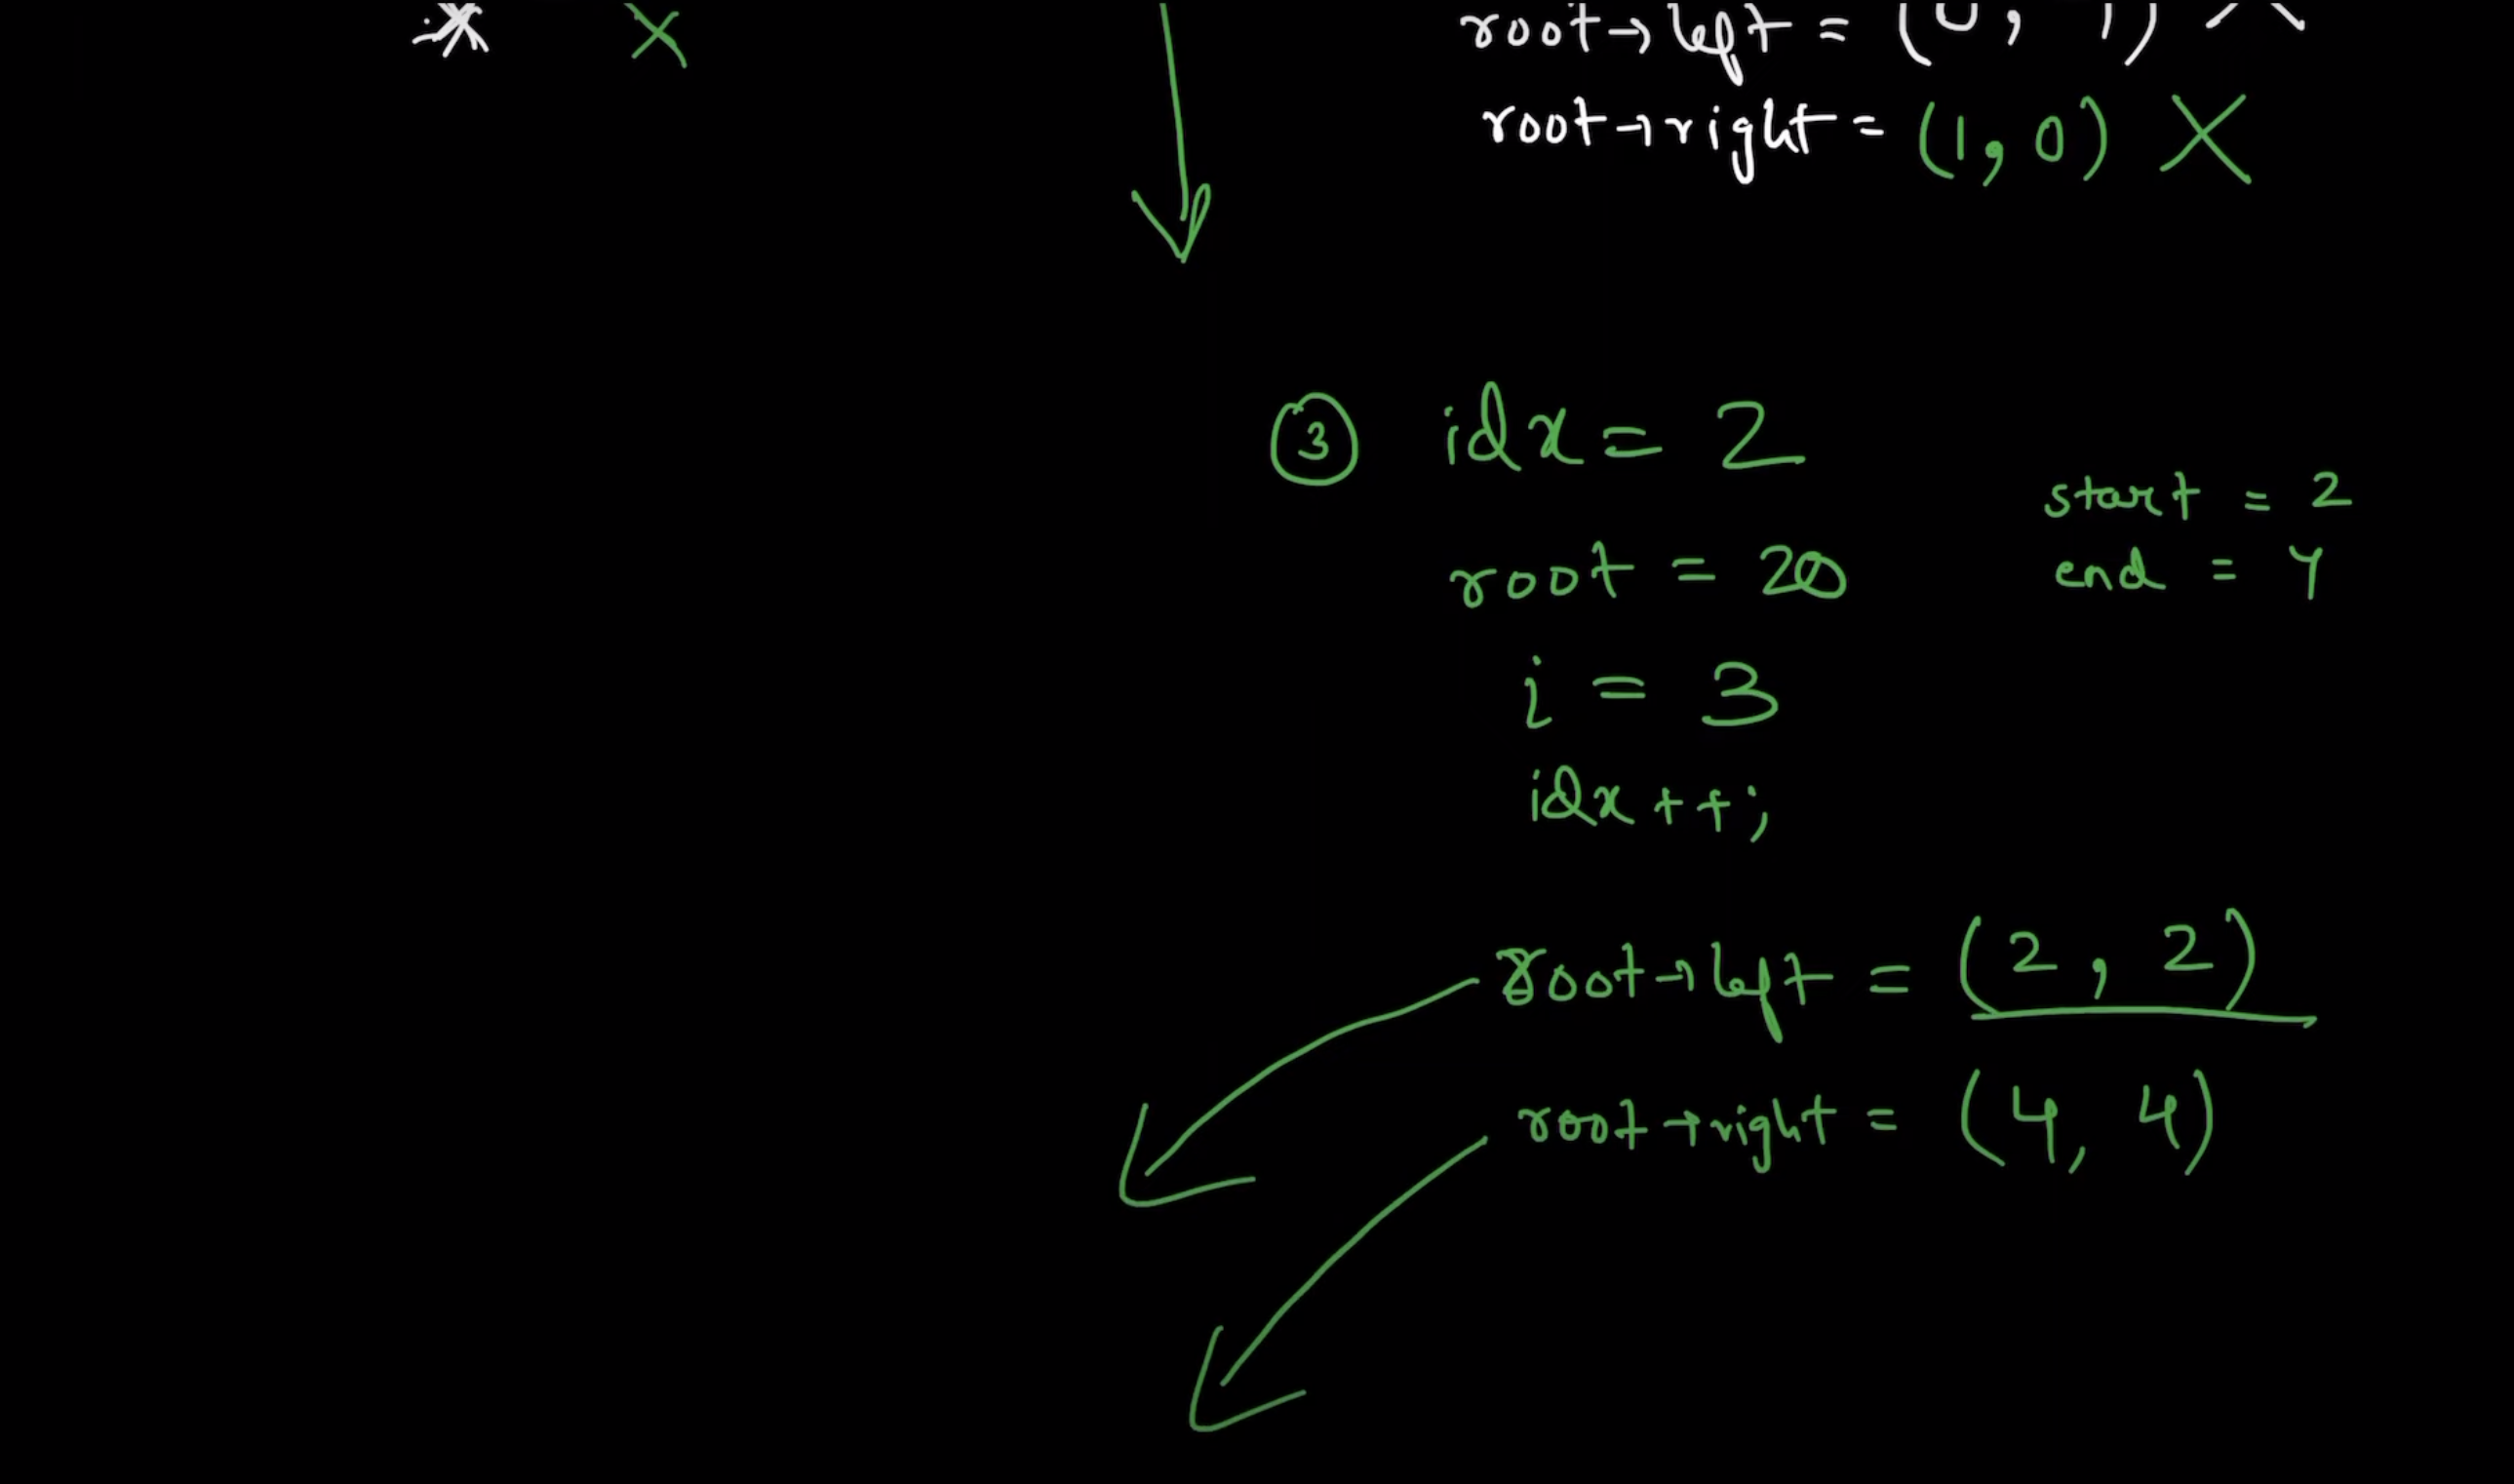 root→left = (0, 1) X
root→right = (1, 0) X
③ idx = 2
start = 2
root = 20
end = 4
i = 3
idx++;
root→left = (2, 2)
root→right = (4, 4)